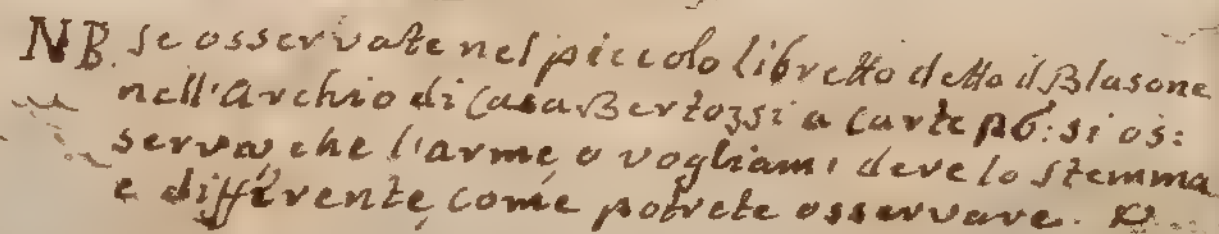 NB. se osservate nel piccolo libretto detto il Blasone
nell'Archio di Casa Bertozzi a Carte 26: si os:
serva, che l'arme, o vogliam' dere lo stemma
e differente, come potrete osservare.